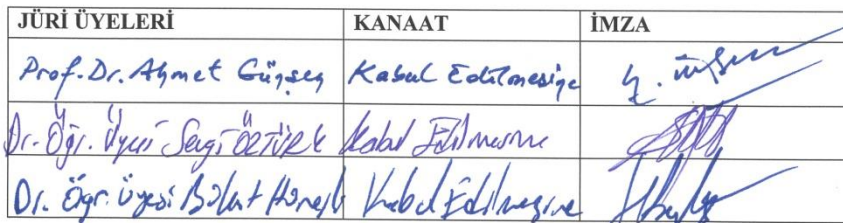 JÜRİ ÜYELERİ KANAAT İMZA
Prof. Dr. Ahmet Kabul Edilmesine
Dr. Öğr. Üyesi Sevgi ÖZTÜRK Kabul Edilmesine
Dr. Öğr. Üyesi Bülent Kabul Edilmesine